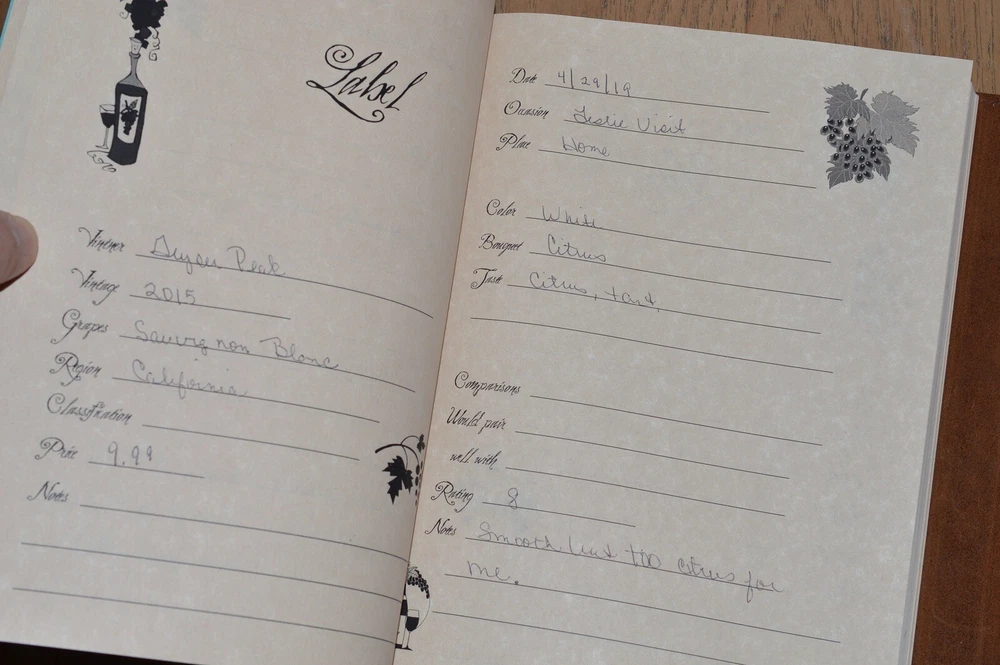 Label
Vintner Geyser Peak
Vintage 2015
Grapes Sauvignon Blanc
Region California
Classification
Price 9.99
Notes
Date 4/29/19
Occasion Leslie Visit
Place Home
Color White
Bouquet Citrus
Taste Citrus, tart,
Comparisons
Would pair
well with
Rating 8
Notes Smooth but too citrus for
me.